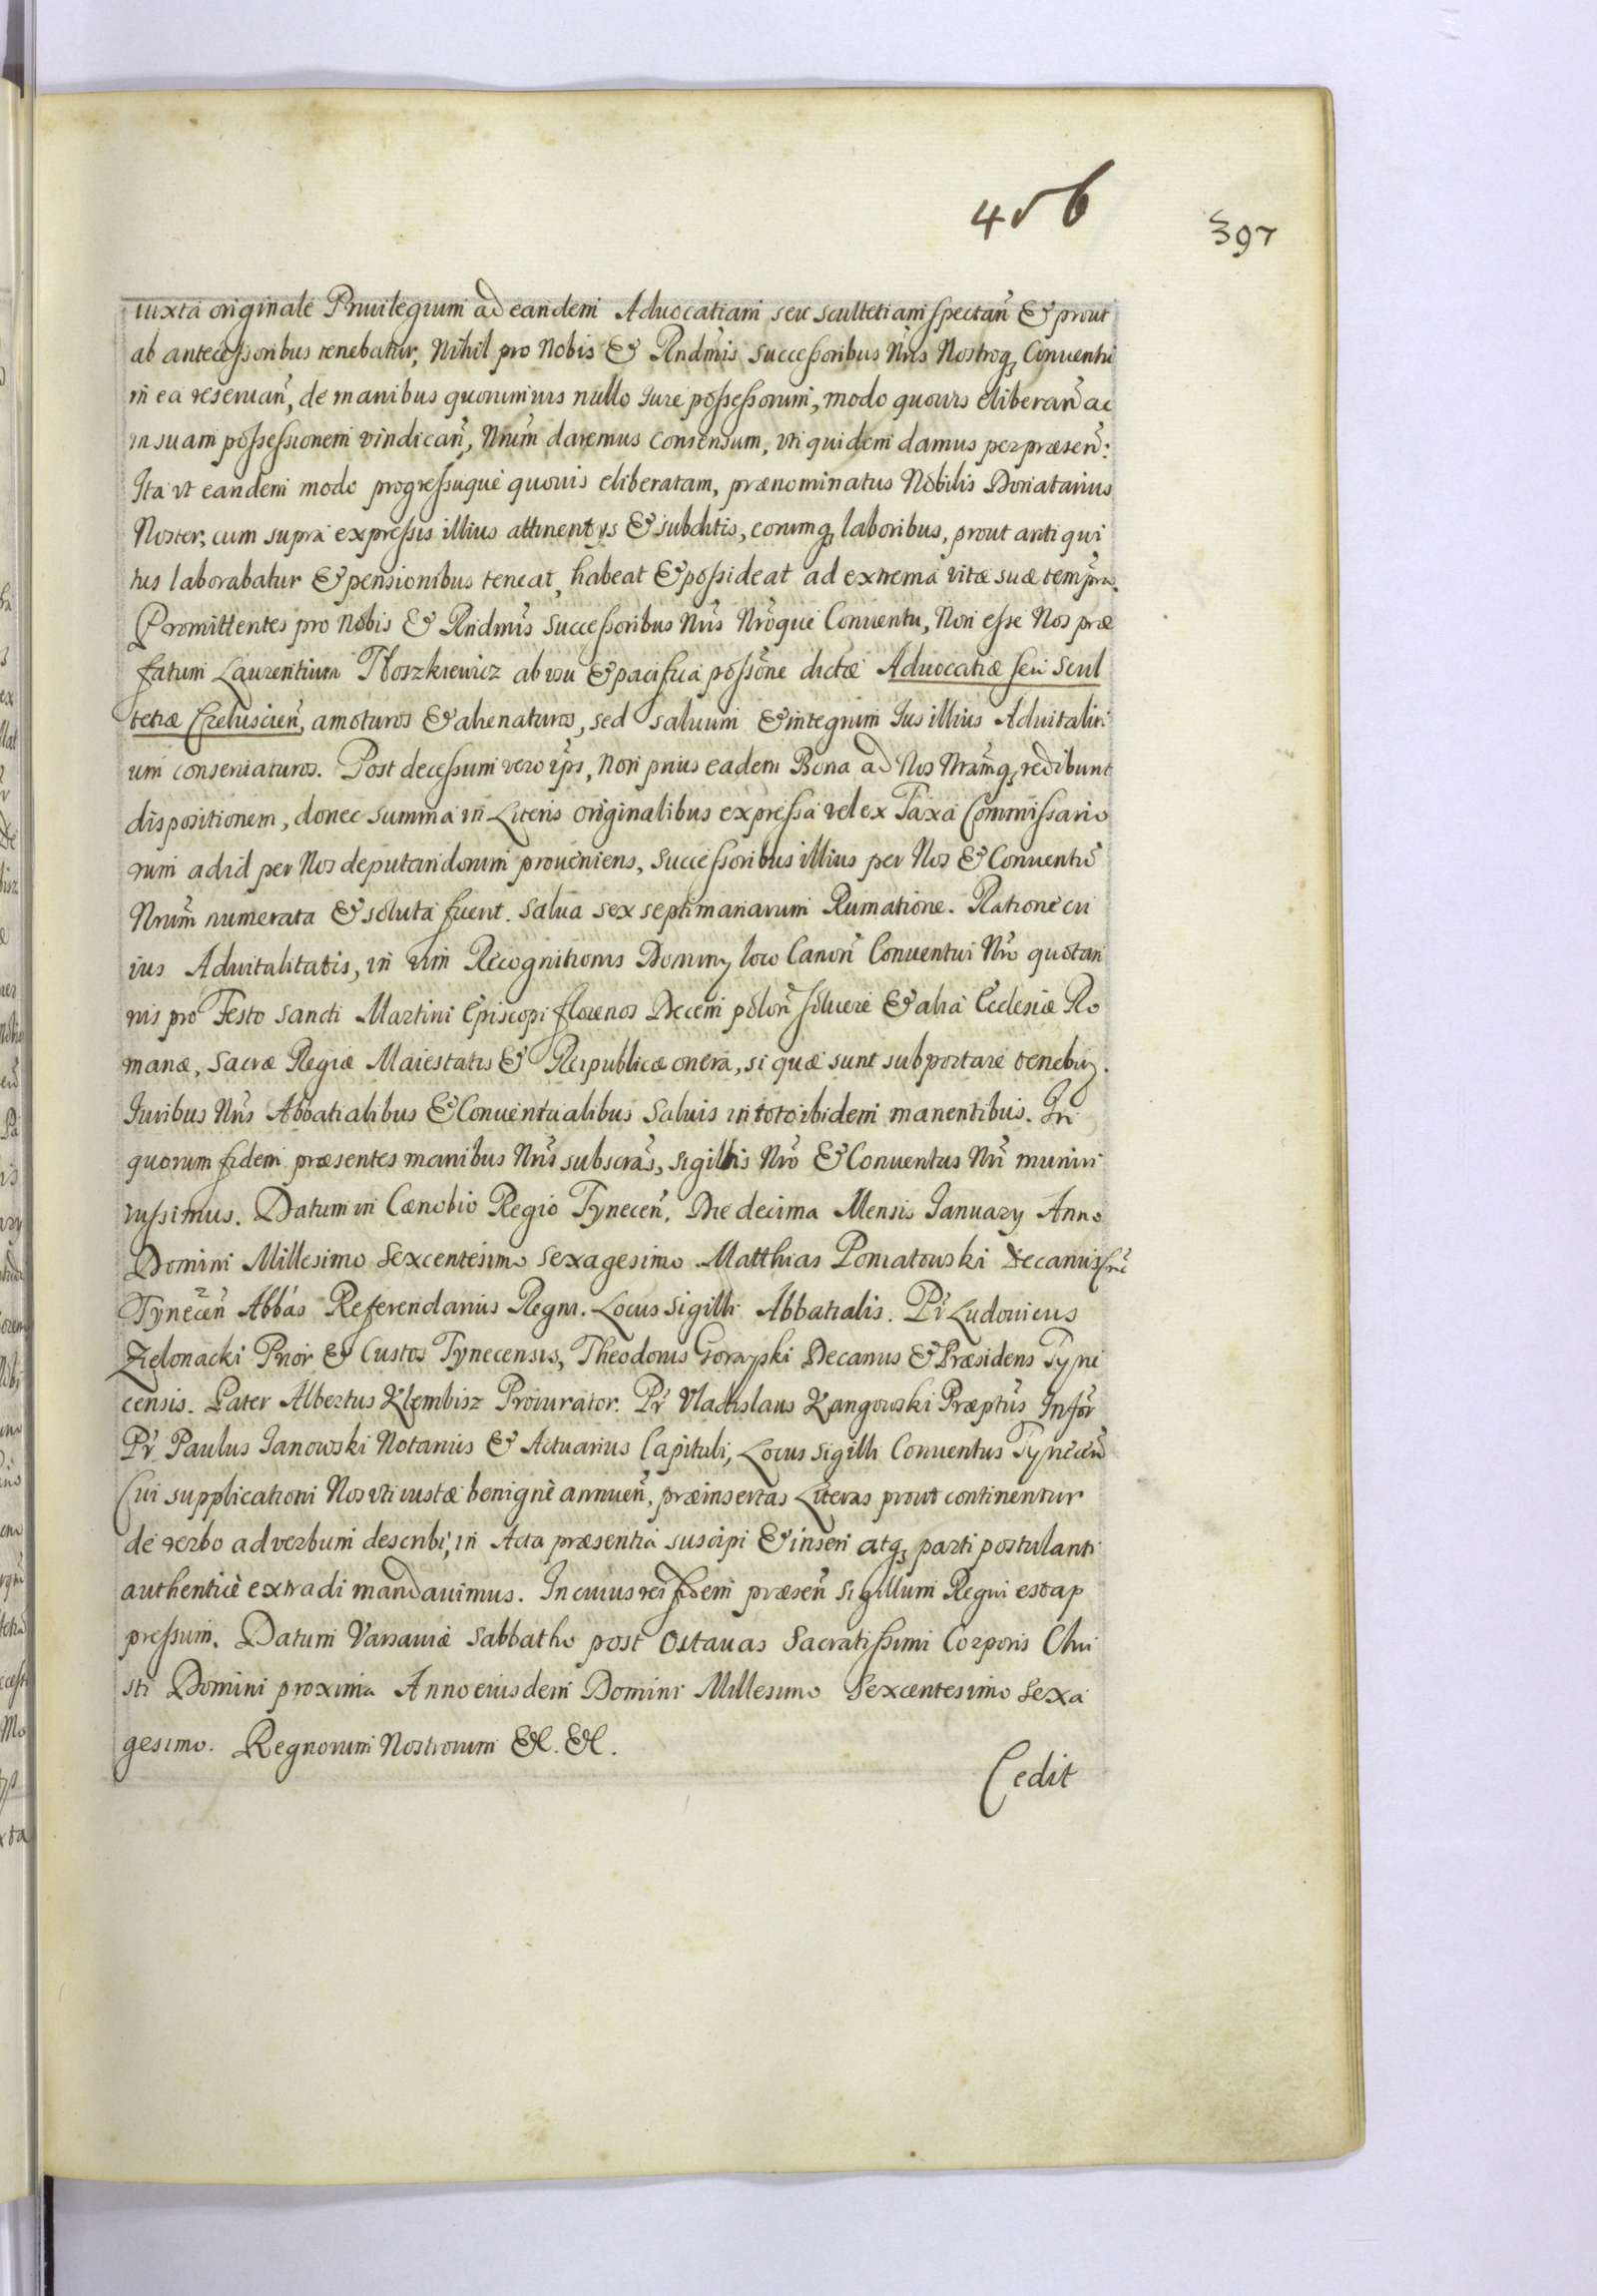 456
397
iuxta originale Priuilegium ad eandem Aduocatiam seu scultetiam spectan̄ & prout
ab antecessoribus tenebatur, Nihil pro Nobis & Rndm̄is successoribus Nr̄is Nostroq₃ Conuentui
in ea reseruan̄, de manibus quorumuis nullo Iure possessorum, modo quouis eliberan̄ ac
in suam possessionem vindican̄, Nrūm daremus Consensum, vti quidem damus per præsen̄:
Ita vt eandem modo progressuque quouis eliberatam, prænominatus Nobilis Donatarius
Noster, cum supra expressis illius attinentys & subditis, eorumq₃ laboribus, prout antiqui
tus laborabatur & pensionibus teneat, habeat & possideat ad extrema vitæ suæ temp̄ra.
Promittentes pro Nobis & Rndm̄is Successoribus Nr̄is Nr̄oque Conuentu, Non esse Nos præ
fatum Laurentium Tłoszkiewicz ab usu & pacifica possōne dictæ Aduocatiæ seu Scul
tetiæ Czeluscien̄, amoturos & alienaturos, sed saluum & integrum Ius illius Aduitaliti
um conseruaturos. Post decessum vero ip̄s, Non prius eadem Bona ad Nos Nrām̄q₃ redibunt
dispositionem, donec summa in Literis originalibus expressa vel ex Taxa Commissario
rum ad id per Nos deputandorum proueniens, Successoribus illius per Nos & Conuentū
Nrūm numerata & soluta fuerit. Salua sex septimanarum Rumatione. Ratione cu
ius Aduitalitatis, in vim Recognitionis Dominy loco Canon̄ Conuentui Nr̄o quotan
nis pro Festo Sancti Martini Episcopi florenos Decem polon̄ soluere & alia Ecclesiæ Ro
manæ, Sacræ Regiæ Maiestatis & Reipublicæ onera, si quæ sunt subportare tenebitur.
Iuribus Nr̄is Abbatialibus & Conuentualibus Saluis in toto ibidem manentibus. In
quorum fidem præsentes manibus Nr̄is subscrās, sigillis Nr̄o & Conuentus Nr̄i muniri
iussimus. Datum in Cænobio Regio Tynecen̄. Die decima Mensis January Anno
Domini Millesimo Sexcentesimo Sexagesimo. Matthias Poniatouski Decanus
Tynecen̄ Abbas Referendarius Regni. Locus Sigilli Abbatialis. Pr̄ Ludouicus
Zielonacki Prior & Custos Tynecensis, Theodorus Gorayski Decanus & Præsidens Tyne
censis. Pater Albertus Klembisz Procurator. Pr̄ Vladislaus Kangowski Præptūs Infōr
Pr̄ Paulus Ianowski Notarius & Actuarius Capituli, Locus Sigilli Conuentus Tynecen̄
Cui supplicationi Nos vti iustæ benignè annuen̄, præinsertas Literas prout continentur
de verbo ad verbum describi, in Acta præsentia suscipi & inseri atq₃ parti postulanti
authenticè extradi mandauimus. In cuius rei fidem præsen̄ Sigillum Regni est ap
pressum. Datum Varsauiæ Sabbatho post Octauas Sacratissimi Corporis Chri
sti Domini proximo Anno eiusdem Domini Millesimo Sexcentesimo Sexa
gesimo. Regnorum Nostrorum &c. &c.
Cedit